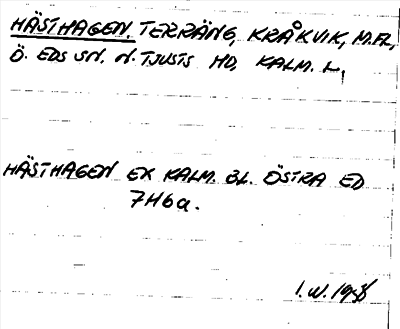 HÄSTHAGEN, TERRÄNG, KRÅKVIK, M.FL,
Ö. EDS SN. N. TJUSTS HD, KALM. L,
HÄSTHAGEN EK KALM. BL. ÖSTRA ED
7H6a.
I.W.